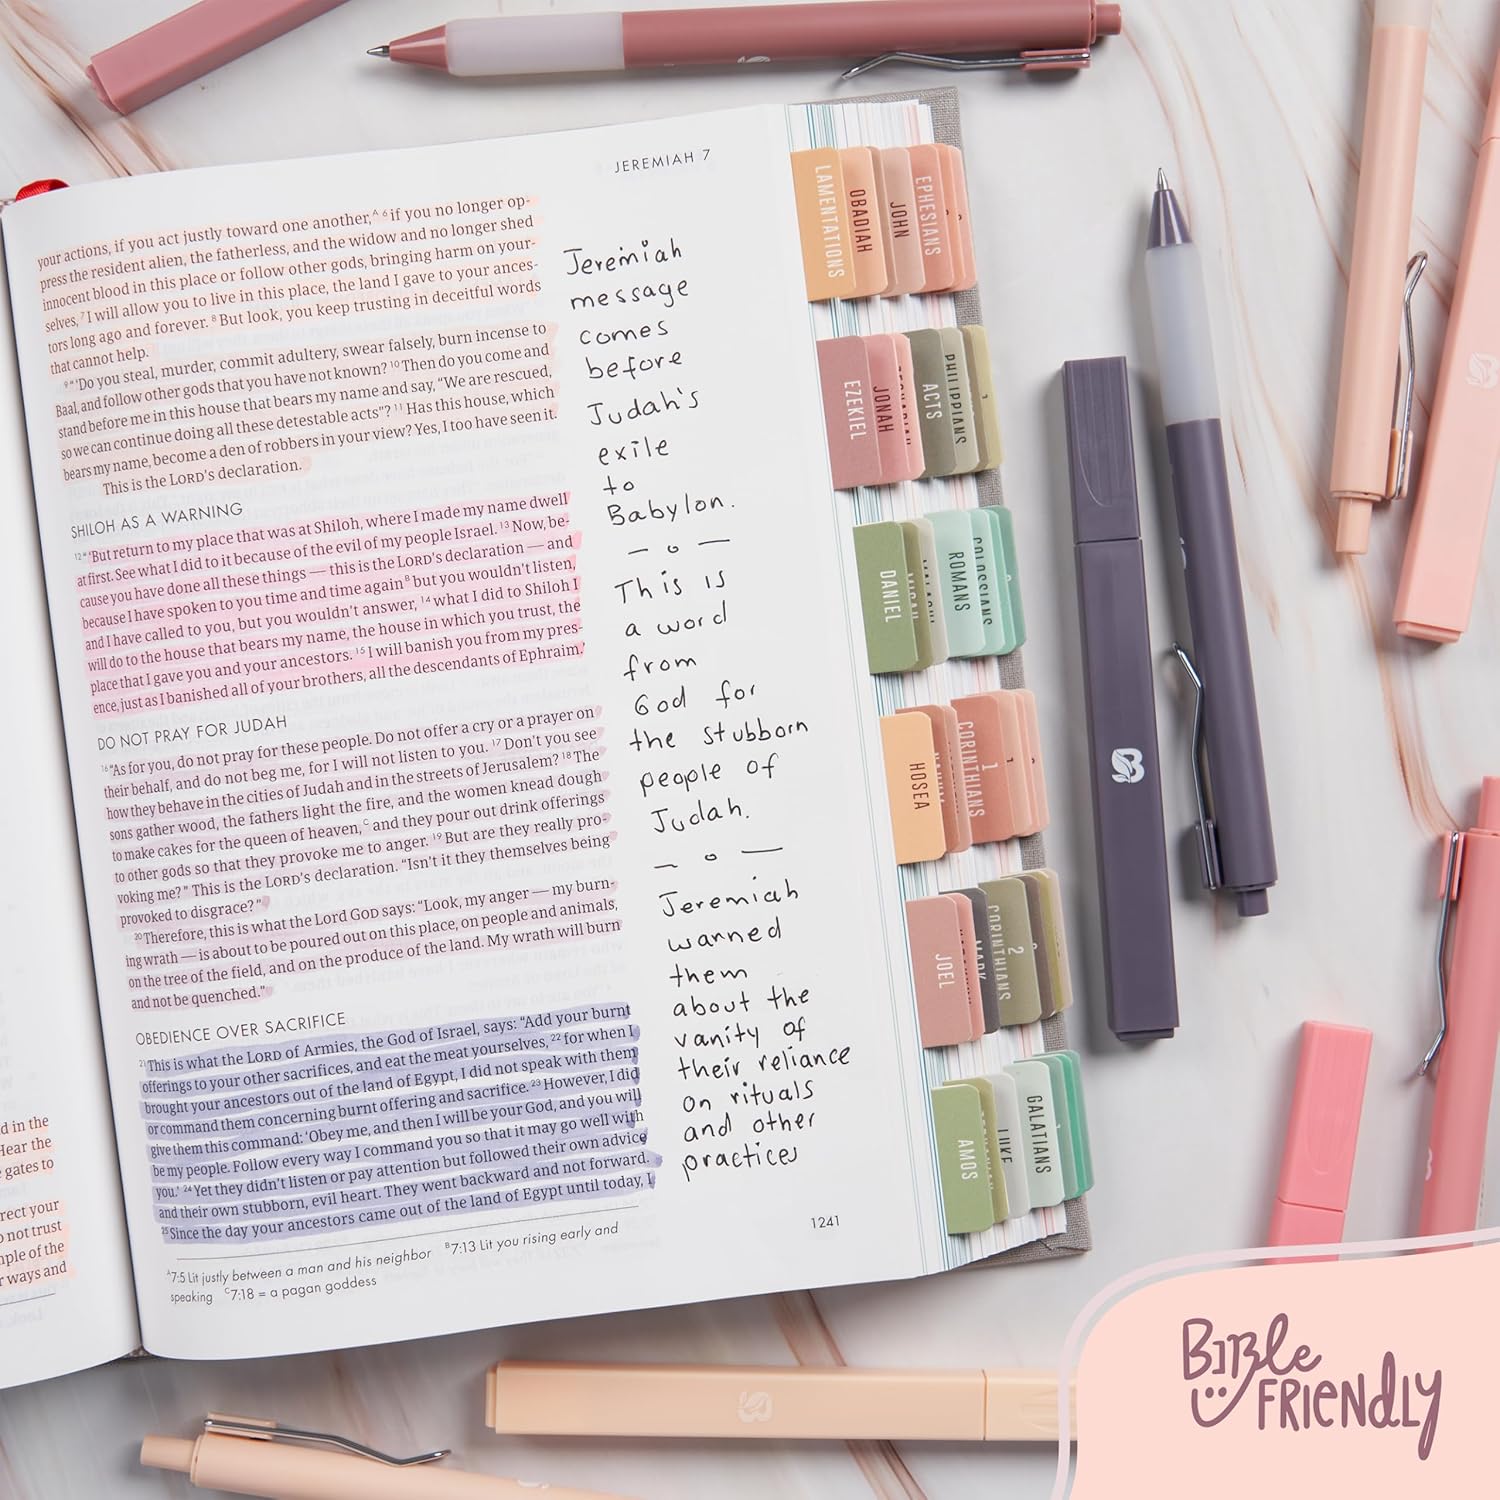 JEREMIAH 7
your actions, if you act justly toward one another,ᴬ ⁶ if you no longer op-
press the resident alien, the fatherless, and the widow and no longer shed
innocent blood in this place or follow other gods, bringing harm on your-
selves, ⁷ I will allow you to live in this place, the land I gave to your ances-
tors long ago and forever. ⁸ But look, you keep trusting in deceitful words
that cannot help.
⁹ “‘Do you steal, murder, commit adultery, swear falsely, burn incense to
Baal, and follow other gods that you have not known? ¹⁰ Then do you come and
stand before me in this house that bears my name and say, “We are rescued,
so we can continue doing all these detestable acts”? ¹¹ Has this house, which
bears my name, become a den of robbers in your view? Yes, I too have seen it.
This is the LORD’s declaration.
SHILOH AS A WARNING
¹² “‘But return to my place that was at Shiloh, where I made my name dwell
at first. See what I did to it because of the evil of my people Israel. ¹³ Now, be-
cause you have done all these things — this is the LORD’s declaration — and
because I have spoken to you time and time againᴮ but you wouldn’t listen,
and I have called to you, but you wouldn’t answer, ¹⁴ what I did to Shiloh I
will do to the house that bears my name, the house in which you trust, the
place that I gave you and your ancestors. ¹⁵ I will banish you from my pres-
ence, just as I banished all of your brothers, all the descendants of Ephraim.’
DO NOT PRAY FOR JUDAH
¹⁶ “As for you, do not pray for these people. Do not offer a cry or a prayer on
their behalf, and do not beg me, for I will not listen to you. ¹⁷ Don’t you see
how they behave in the cities of Judah and in the streets of Jerusalem? ¹⁸ The
sons gather wood, the fathers light the fire, and the women knead dough
to make cakes for the queen of heaven,ᶜ and they pour out drink offerings
to other gods so that they provoke me to anger. ¹⁹ But are they really pro-
voking me?” This is the LORD’s declaration. “Isn’t it they themselves being
provoked to disgrace?”
²⁰ Therefore, this is what the Lord GOD says: “Look, my anger — my burn-
ing wrath — is about to be poured out on this place, on people and animals,
on the tree of the field, and on the produce of the land. My wrath will burn
and not be quenched.”
OBEDIENCE OVER SACRIFICE
²¹ This is what the LORD of Armies, the God of Israel, says: “Add your burnt
offerings to your other sacrifices, and eat the meat yourselves, ²² for when I
brought your ancestors out of the land of Egypt, I did not speak with them
or command them concerning burnt offering and sacrifice. ²³ However, I did
give them this command: ‘Obey me, and then I will be your God, and you will
be my people. Follow every way I command you so that it may go well with
you.’ ²⁴ Yet they didn’t listen or pay attention but followed their own advice
and their own stubborn, evil heart. They went backward and not forward.
²⁵ Since the day your ancestors came out of the land of Egypt until today, I
ᴬ7:5 Lit justly between a man and his neighbor ᴮ7:13 Lit you rising early and
speaking ᶜ7:18 = a pagan goddess
1241
Jeremiah
message
comes
before
Judah's
exile
to
Babylon.
This is
a word
from
God for
the stubborn
people of
Judah.
Jeremiah
warned
them
about the
vanity of
their reliance
on rituals
and other
practices
d in the
Hear the
gates to
rect your
o not trust
mple of the
r ways and
LAMENTATIONS
OBADIAH
JOHN
EPHESIANS
EZEKIEL
JONAH
ACTS
PHILIPPIANS
DANIEL
ROMANS
COLOSSIANS
HOSEA
1 CORINTHIANS
JOEL
MARK
2 CORINTHIANS
AMOS
LUKE
GALATIANS
BIBLE
FRIENDLY